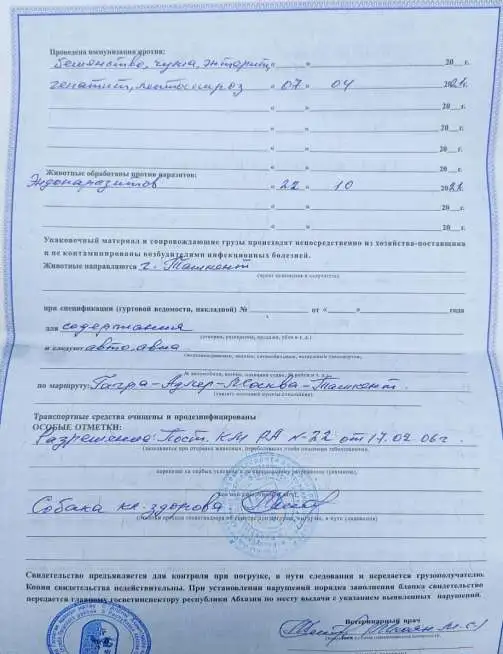 Проведена иммунизация против:
бешенство, чума, энтерит « » 20 г.
гепатит, лептоспироз « 07 » 04 2021г.
« » 20 г.
« » 20 г.
« » 20 г.
« » 20 г.
Животные обработаны против паразитов:
Эндопаразитов « 22 » 10 2021.
« » 20 г.
« » 20 г.
Упаковочный материал и сопровождающие грузы происходят непосредственно из хозяйства-поставщика
и не контаминированы возбудителями инфекционных болезней.
Животные направляются г. Ташкент
при спецификации (гуртовой ведомости, накладной) № от « » года
для содержания
и следуют авто, авиа
по маршруту: Гагра-Адлер-Москва-Ташкент.
(указать основные пункты следования)
Транспортные средства очищены и продезинфицированы
ОСОБЫЕ ОТМЕТКИ:
Разрешение: Пост. КМ РА N-22 от 17.02.06г.
(заполняется при отправке животных, переболевших особо опасными заболеваниями,
Собака кл. здорова
Свидетельство предъявляется для контроля при погрузке, в пути следования и передается грузополучателю.
Копии свидетельства недействительны. При установлении нарушений порядка заполнения бланка свидетельство
передается главному госветинспектору республики Абхазия по месту выдачи с указанием выявленных нарушений.
Ветеринарный врач